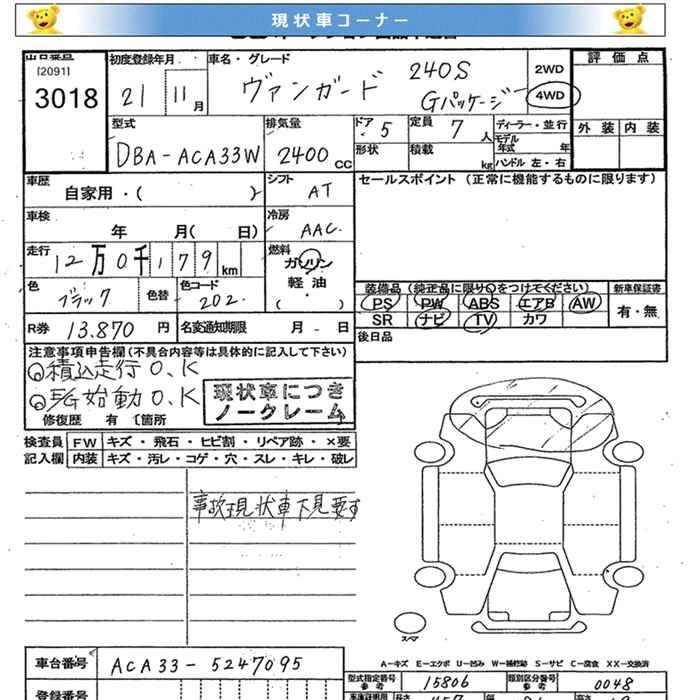 現状車コーナー
出品番号
[2091]
3018
初度登録年月
21 11月
車名・グレード
ヴァンガード 240S
Gパッケージ
2WD
4WD
評価点
外装 内装
型式
DBA-ACA33W
排気量
2400 CC
ドア 5
形状
定員 7 人
積載 kg
ディーラー・並行
モデル年式 年
ハンドル 左・右
車歴
自家用・( )
シフト AT
セールスポイント (正常に機能するものに限ります)
車検
年 月( 日)
冷房
AAC
走行
12万0千179km
燃料
ガソリン
軽油
・
( )
色
ブラック
色替
色コード
202
装備品 (純正品に限り○をつけてください)
PS PW ABS エアB AW
SR ナビ TV カワ
新車保証書
有・無
R券 13.870 円
名変通知期限 月 - 日
後日品
注意事項申告欄(不具合内容等は具体的に記入して下さい)
積込走行 O.K
E/G始動 O.K
現状車につき
ノークレーム
修復歴 有 〔箇所
検査員 FW キズ・飛石・ヒビ割・リペア跡・×要
記入欄 内装 キズ・汚レ・コゲ・穴・スレ・キレ・破レ
事故現状車下見要す
スペア
A-キズ E-エクボ U-凹み W-補修跡 S-サビ C-腐食 XX-交換済
車台番号 ACA33-5247095
型式指定番号 参考 15806
類別区分番号 参考 0048
登録番号